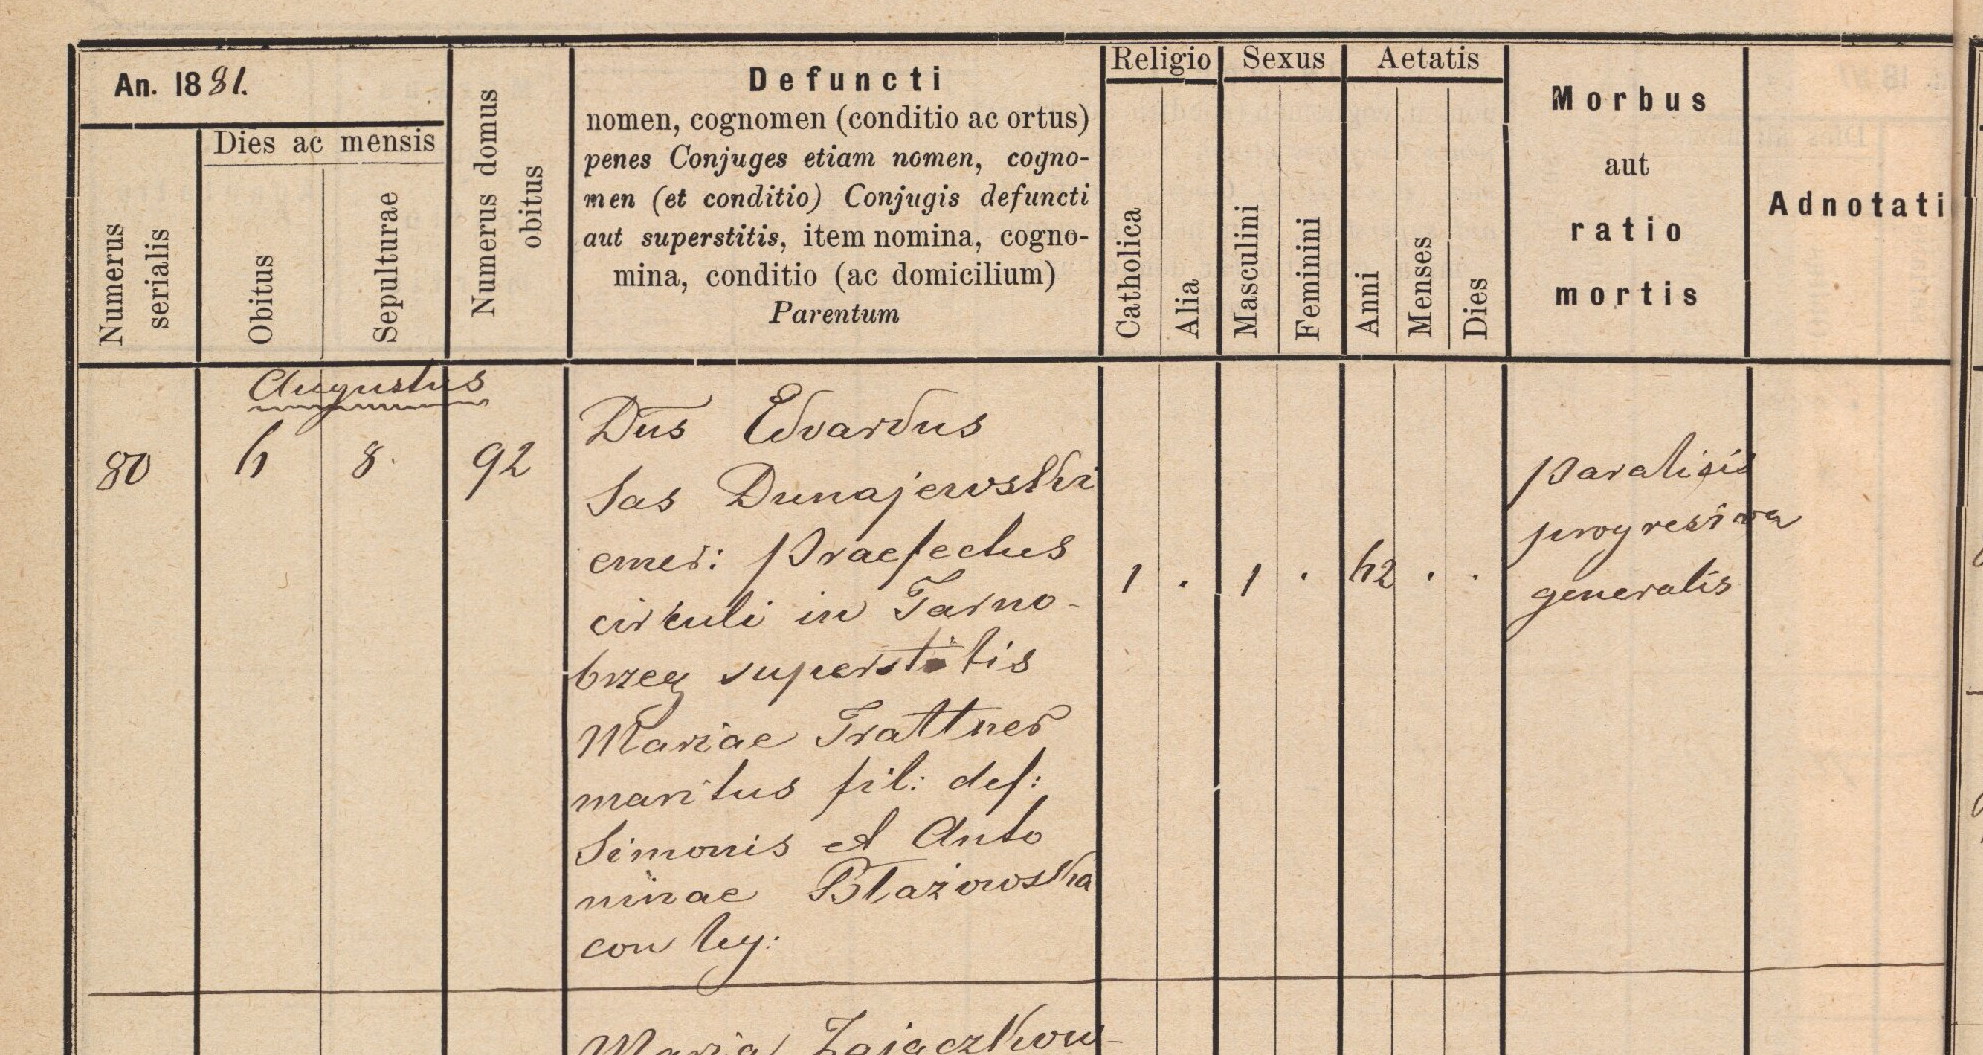 An. 1881.
Dies ac mensis
Numerus serialis
Obitus
Sepulturae
Numerus domus obitus
Defuncti
nomen, cognomen (conditio ac ortus)
penes Conjuges etiam nomen, cogno-
men (et conditio) Conjugis defuncti
aut superstitis, item nomina, cogno-
mina, conditio (ac domicilium)
Parentum
Religio
Catholica
Alia
Sexus
Masculini
Feminini
Aetatis
Anni
Menses
Dies
Morbus
aut
ratio
mortis
Adnotati
Augustus
80 6 8. 92
Dus Edvardus
Sas Dunajewski
emer: Praefectus
circuli in Tarno-
brzeg superstitis
Mariae Trattner
maritus fil: def:
Simonis et Anto
ninae Błażowska
conjug:
1 . 1 . 62 . .
paralisis
progressiva
generalis
Maria Zajączkow-